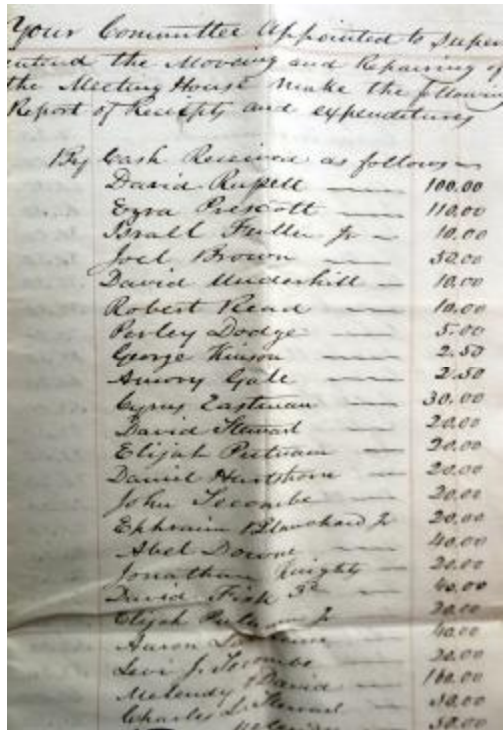 Your Committee Appointed to Super
intend the Moveing and Repairing of
the Meeting House make the following
Report of Receipts and expenditures
By Cash Received as follows
David Russell 100.00
Ezra Prescott 110.00
Israll Fuller Jr 10.00
Joel Brown 50.00
David Underhill 10.00
Robert Read 10.00
Perley Dodge 5.00
George Kinson 2.50
Amory Gale 2.50
Cyrus Eastman 30.00
David Stewart 20.00
Elijah Putnam 20.00
Daniel Hartshorn 20.00
John Secombe 20.00
Ephraim Blanchard Jr 20.00
Abel Downe 40.00
Jonathan Knights 20.00
David Fisk 40.00
Elijah Putnam Jr 20.00
Aaron 40.00
Levi J. Secombe 20.00
Melendy & David 160.00
Charles L. Stewart 50.00
50.00